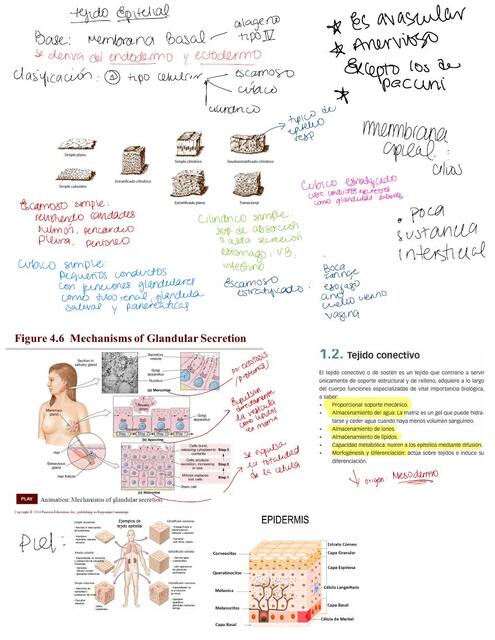 Tejido Epitelial
Base: Membrana Basal
colageno
tipo IV
se deriva del endodermo y ectodermo
Clasificación: 1 tipo celular
escamoso
cubico
cilindrico
* Es avascular
* Anervioso
Excepto los de
pacuni
*
tipico de
epitelio
resp
Simple plano
Simple cuboideo
Estratificado cúbico
Simple cilíndrico
Pseudoestratificado cilíndrico
Estratificado plano
Transicional
membrana
apical:
cilios
Cubico estratificado
como glandulas
Escamoso simple:
revistiendo cavidades
pulmón, pericardio
Pleura, peritoneo
Cilindrico simple:
sup de absorción
o alta secreción
estomago, VB,
intestino
. Poca
sustancia
intersticial
cubico simple:
Pequeños conductos
con funciones glandulares
como tubo renal, glandula
salival y pancreaticas
Escamoso
estratificado:
Boca
faringe
esofago
ano
cuello uterino
vagina
Figure 4.6 Mechanisms of Glandular Secretion
Section in
salivary gland
Mammary gland
Hair
Sebaceous
gland
Hair follicle
Secretory
vesicle
Golgi
apparatus
Nucleus
(a) Merocrine
Golgi
apparatus
Step 1
Step 2
Step 3
Step 4
(b) Apocrine
Cells burst,
releasing cytoplasmic
contents
Step 3
Cells produce
secretion, increasing
in size
Step 2
Mitosis replaces
lost cells
Step 1
Stem cell
(c) Holocrine
exocitosis
(proteina)
Expulsan
la vesicula
como lipidos
en mama
se expulsa
la totalidad
de la celula
PLAY Animation: Mechanisms of glandular secretion
1.2. Tejido conectivo
El tejido conectivo o de sostén es un tejido que contrario a servir
únicamente de soporte estructural y de relleno, adquiere a lo largo
del cuerpo funciones especializadas de vital importancia biológica,
a saber:
• Proporcionar soporte mecánico.
• Almacenamiento del agua: La matriz es un gel que puede hidra-
tarse y ceder agua cuando haya menos volumen sanguíneo.
• Almacenamiento de iones.
• Almacenamiento de lípidos.
• Capacidad metabólica: nutren a los epitelios mediante difusión.
• Morfogénesis y diferenciación: actúa sobre tejidos e induce su
diferenciación.
origen Mesodermo
Piel:
Ejemplos de
tejido epitelial
EPIDERMIS
Corneocitos
Queratinocitos
Melanina
Melanocitos
Capa Basal
Estrato Córneo
Capa Granular
Capa Espinosa
Célula Langerhans
Capa Basal
Célula de Merkel